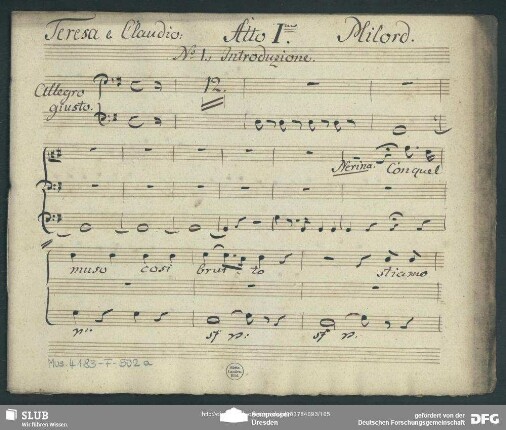 Teresa e Claudio. Atto I.mo Milord.
No 1. Introduzione.
Allegro giusto.
12.
Nerina. Con quel
muso così brut to stiamo
sf p: sf p:
Mus. 4183-F-502a
SLUB
Wir führen Wissen.
Dresden
gefördert von der
Deutschen Forschungsgemeinschaft
DFG